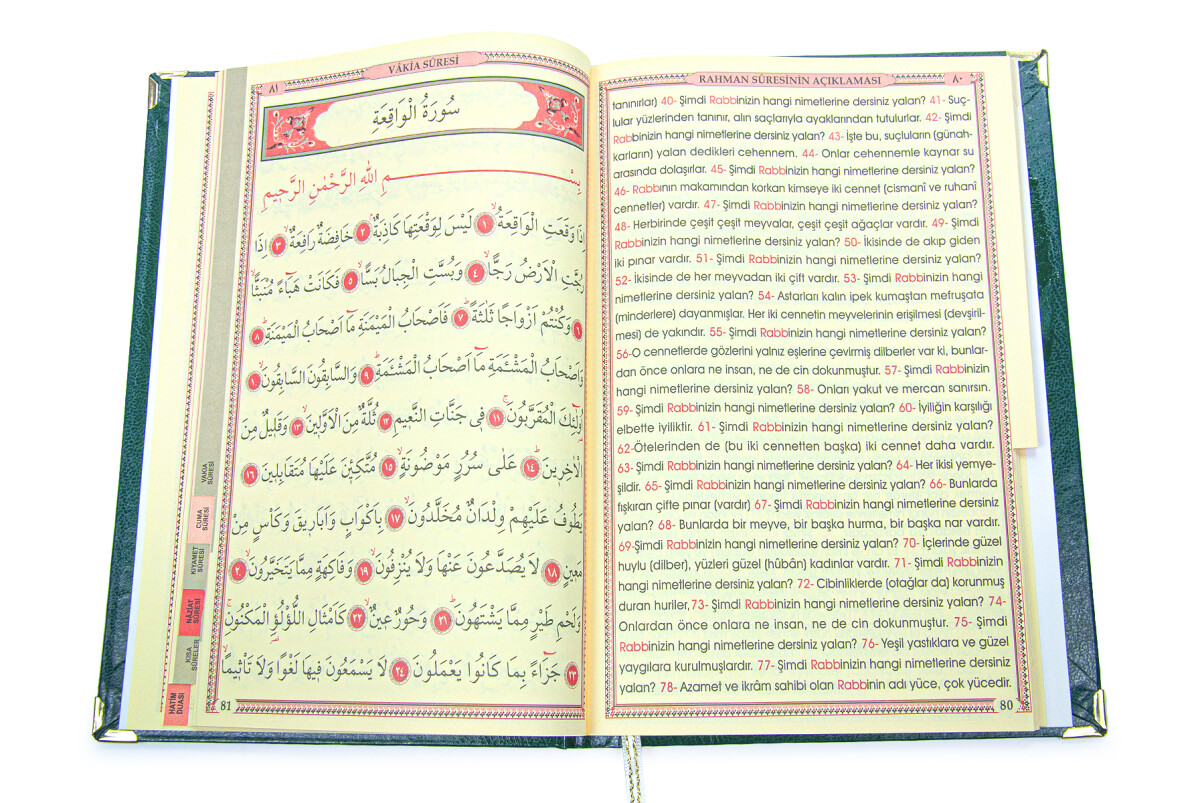 RAHMAN SÛRESİNİN AÇIKLAMASI
٨٠
tanınırlar) 40- Şimdi Rabbinizin hangi nimetlerine dersiniz yalan? 41- Suç-
lular yüzlerinden tanınır, alın saçlarıyla ayaklarından tutulurlar. 42- Şimdi
Rabbinizin hangi nimetlerine dersiniz yalan? 43- İşte bu, suçluların (günah-
karların) yalan dedikleri cehennem. 44- Onlar cehennemle kaynar su
arasında dolaşırlar. 45- Şimdi Rabbinizin hangi nimetlerine dersiniz yalan?
46- Rabbının makamından korkan kimseye iki cennet (cismanî ve ruhanî
cennetler) vardır. 47- Şimdi Rabbinizin hangi nimetlerine dersiniz yalan?
48- Herbirinde çeşit çeşit meyvalar, çeşit çeşit ağaçlar vardır. 49- Şimdi
Rabbinizin hangi nimetlerine dersiniz yalan? 50- İkisinde de akıp giden
iki pınar vardır. 51- Şimdi Rabbinizin hangi nimetlerine dersiniz yalan?
52- İkisinde de her meyvadan iki çift vardır. 53- Şimdi Rabbinizin hangi
nimetlerine dersiniz yalan? 54- Astarları kalın ipek kumaştan mefruşata
(minderlere) dayanmışlar. Her iki cennetin meyvelerinin erişilmesi (devşiril-
mesi) de yakındır. 55- Şimdi Rabbinizin hangi nimetlerine dersiniz yalan?
56-O cennetlerde gözlerini yalnız eşlerine çevirmiş dilberler var ki, bunlar-
dan önce onlara ne insan, ne de cin dokunmuştur. 57- Şimdi Rabbinizin
hangi nimetlerine dersiniz yalan? 58- Onları yakut ve mercan sanırsın.
59- Şimdi Rabbinizin hangi nimetlerine dersiniz yalan? 60- İyiliğin karşılığı
elbette iyiliktir. 61- Şimdi Rabbinizin hangi nimetlerine dersiniz yalan?
62-Ötelerinden de (bu iki cennetten başka) iki cennet daha vardır.
63- Şimdi Rabbinizin hangi nimetlerine dersiniz yalan? 64- Her ikisi yemye-
şildir. 65- Şimdi Rabbinizin hangi nimetlerine dersiniz yalan? 66- Bunlarda
fışkıran çifte pınar (vardır) 67- Şimdi Rabbinizin hangi nimetlerine dersiniz
yalan? 68- Bunlarda bir meyve, bir başka hurma, bir başka nar vardır.
69-Şimdi Rabbinizin hangi nimetlerine dersiniz yalan? 70- İçlerinde güzel
huylu (dilber), yüzleri güzel (hûbân) kadınlar vardır. 71- Şimdi Rabbinizin
hangi nimetlerine dersiniz yalan? 72- Cibinliklerde (otağlar da) korunmuş
duran huriler,73- Şimdi Rabbinizin hangi nimetlerine dersiniz yalan? 74-
Onlardan önce onlara ne insan, ne de cin dokunmuştur. 75- Şimdi
Rabbinizin hangi nimetlerine dersiniz yalan? 76- Yeşil yastıklara ve güzel
yaygılara kurulmuşlardır. 77- Şimdi Rabbinizin hangi nimetlerine dersiniz
yalan? 78- Azamet ve ikrâm sahibi olan Rabbinin adı yüce, çok yücedir.
80
VÂKİA SÛRESİ
٨١
سُورَةُ الْوَاقِعَةِ
بِسْمِ اللّٰهِ الرَّحْمٰنِ الرَّح۪يمِ
اِذَا وَقَعَتِ الْوَاقِعَةُۙ ١ لَيْسَ لِوَقْعَتِهَا كَاذِبَةٌۢ ٢ خَافِضَةٌ رَافِعَةٌۙ ٣ اِذَا
رُجَّتِ الْاَرْضُ رَجًّاۙ ٤ وَبُسَّتِ الْجِبَالُ بَسًّاۙ ٥ فَكَانَتْ هَبَٓاءً مُنْبَثًّاۙ
٦ وَكُنْتُمْ اَزْوَاجًا ثَلٰثَةًۜ ٧ فَاَصْحَابُ الْمَيْمَنَةِ مَٓا اَصْحَابُ الْمَيْمَنَةِۜ ٨
وَاَصْحَابُ الْمَشْـَٔمَةِ مَٓا اَصْحَابُ الْمَشْـَٔمَةِۜ ٩ وَالسَّابِقُونَ السَّابِقُونَۙ ١٠
اُو۬لٰٓئِكَ الْمُقَرَّبُونَۚ ١١ ف۪ي جَنَّاتِ النَّع۪يمِ ١٢ ثُلَّةٌ مِنَ الْاَوَّل۪ينَۙ ١٣ وَقَل۪يلٌ مِنَ
الْاٰخِر۪ينَۜ ١٤ عَلٰى سُرُرٍ مَوْضُونَةٍۙ ١٥ مُتَّكِـ۪ٔينَ عَلَيْهَا مُتَقَابِل۪ينَ ١٦
يَطُوفُ عَلَيْهِمْ وِلْدَانٌ مُخَلَّدُونَۙ ١٧ بِاَكْوَابٍ وَاَبَار۪يقَ وَكَأْسٍ مِنْ
مَع۪ينٍۙ ١٨ لَا يُصَدَّعُونَ عَنْهَا وَلَا يُنْزِفُونَۙ ١٩ وَفَاكِهَةٍ مِمَّا يَتَخَيَّرُونَۙ ٢٠
وَلَحْمِ طَيْرٍ مِمَّا يَشْتَهُونَۜ ٢١ وَحُورٌ ع۪ينٌۙ ٢٢ كَاَمْثَالِ اللُّؤْلُؤِ الْمَكْنُونِۚ
٢٣ جَزَٓاءً بِمَا كَانُوا يَعْمَلُونَ ٢٤ لَا يَسْمَعُونَ ف۪يهَا لَغْوًا وَلَا تَأْث۪يمًاۙ
81
VAKIA SÛRESİ
CUMA SÛRESİ
KIYAMET SÛRESİ
NÂZİAT SÛRESİ
KISA SÛRELER
HATİM DUASI